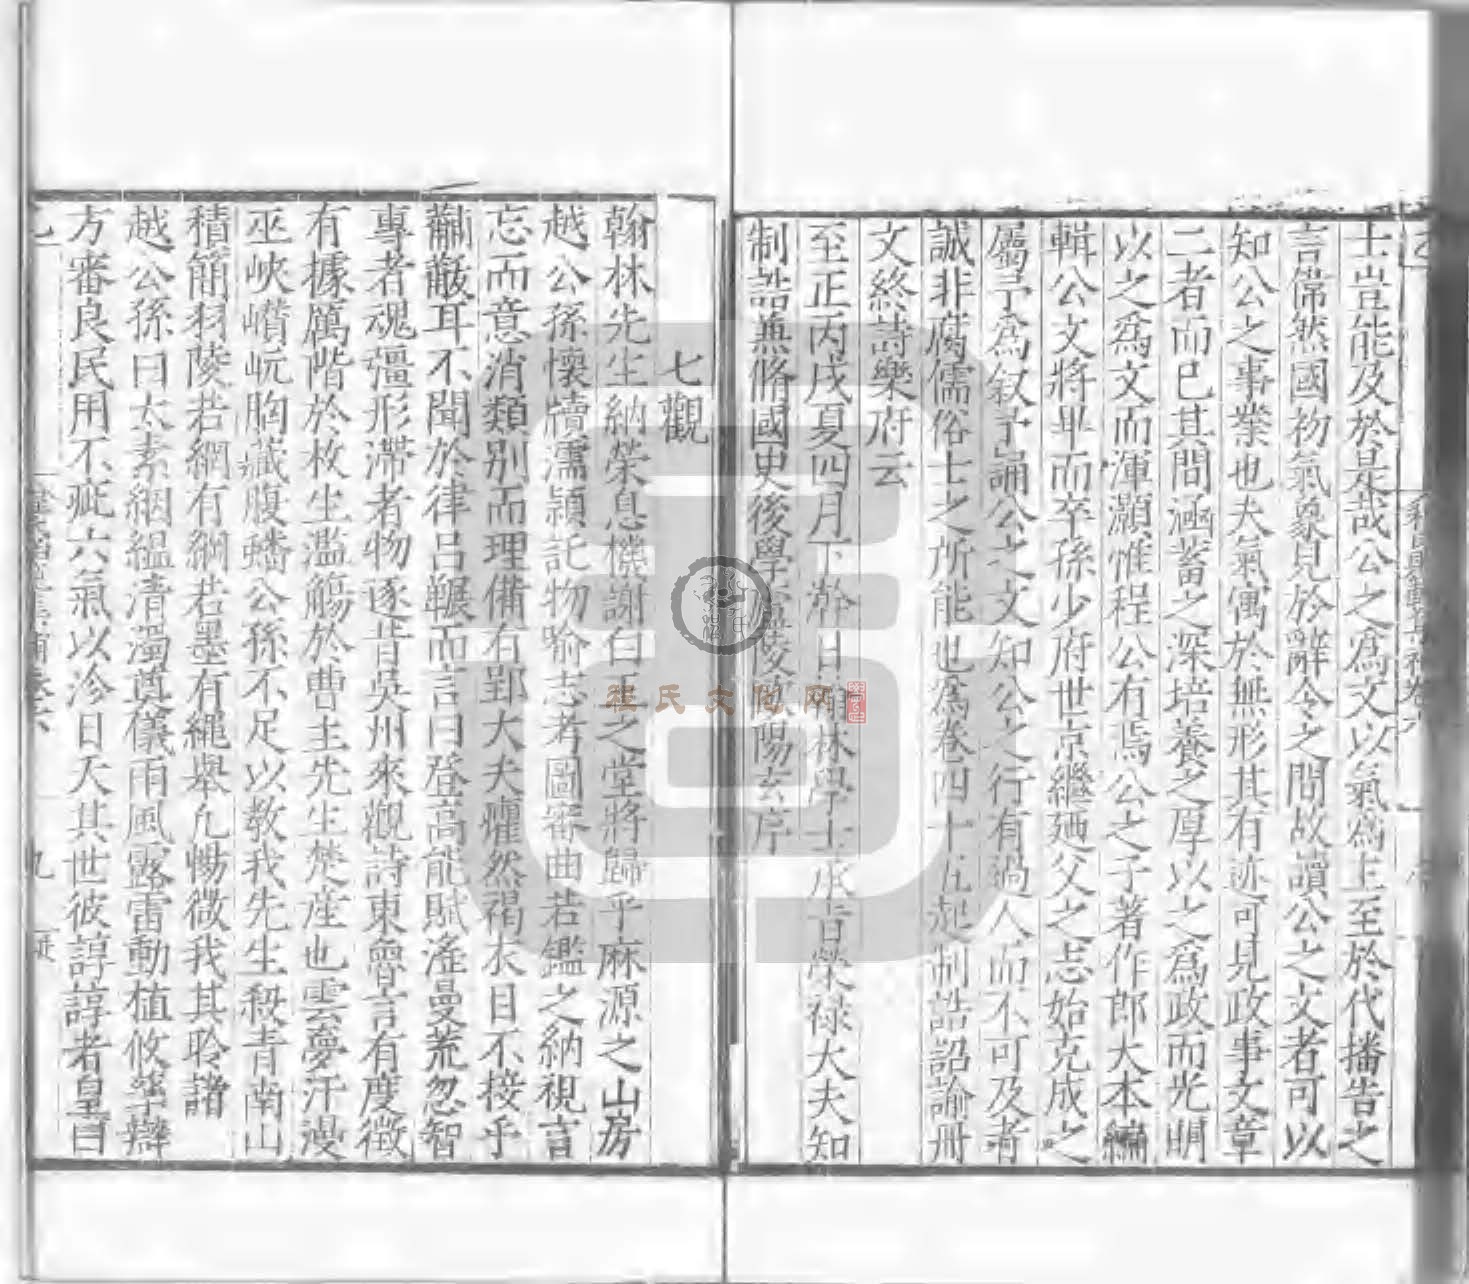 士豈能及於是哉公之為文以氣為主至於代播告之
言儕然國物氣象見於辭令之間故讀公之文者可以
知公之事業也夫氣寓於無形其有迹可見政事文章
二者而已其間涵蓄之深培養之厚以之爲政而光明
以之爲文而渾灝惟程公有焉公之子著作郎大本編
輯公文將畢而卒孫少府世京繼廼父之志始克成之
屬予爲叙予誦公之文知公之行有過人而不可及者
誠非腐儒俗士之所能也爲卷四十五起制誥詔諭冊
文終詩樂府云
至正丙戌夏四月下澣日翰林學士承旨榮祿大夫知
制誥兼脩國史後學廬陵歐陽玄序
七觀
翰林先生納榮息機謝白玉之堂將歸乎麻源之山房
越公孫懷牘濡穎託物喻志考圖審曲若鑑之納視言
忘而意消類別而理備有郢大夫癯然褐衣目不接乎
黼黻耳不聞於律呂囅而言曰登高能賦滛曼荒忽智
專者魂彊形滯者物逐昔吳州來觀詩東魯言有度徵
有據厲階於枚生濫觴於曹王先生楚産也雲夢汗漫
巫峽巑岏胸藏腹蟠公孫不足以教我先生殺青南山
積簡羽陵若網有綱若墨有繩舉凡暢微我其聆諸
越公孫曰太素絪緼清濁奠儀雨風露雷動植攸孳辯
方審良民用不疵六氣以沴日夭其世彼諄諄者皇曰
程氏文化网